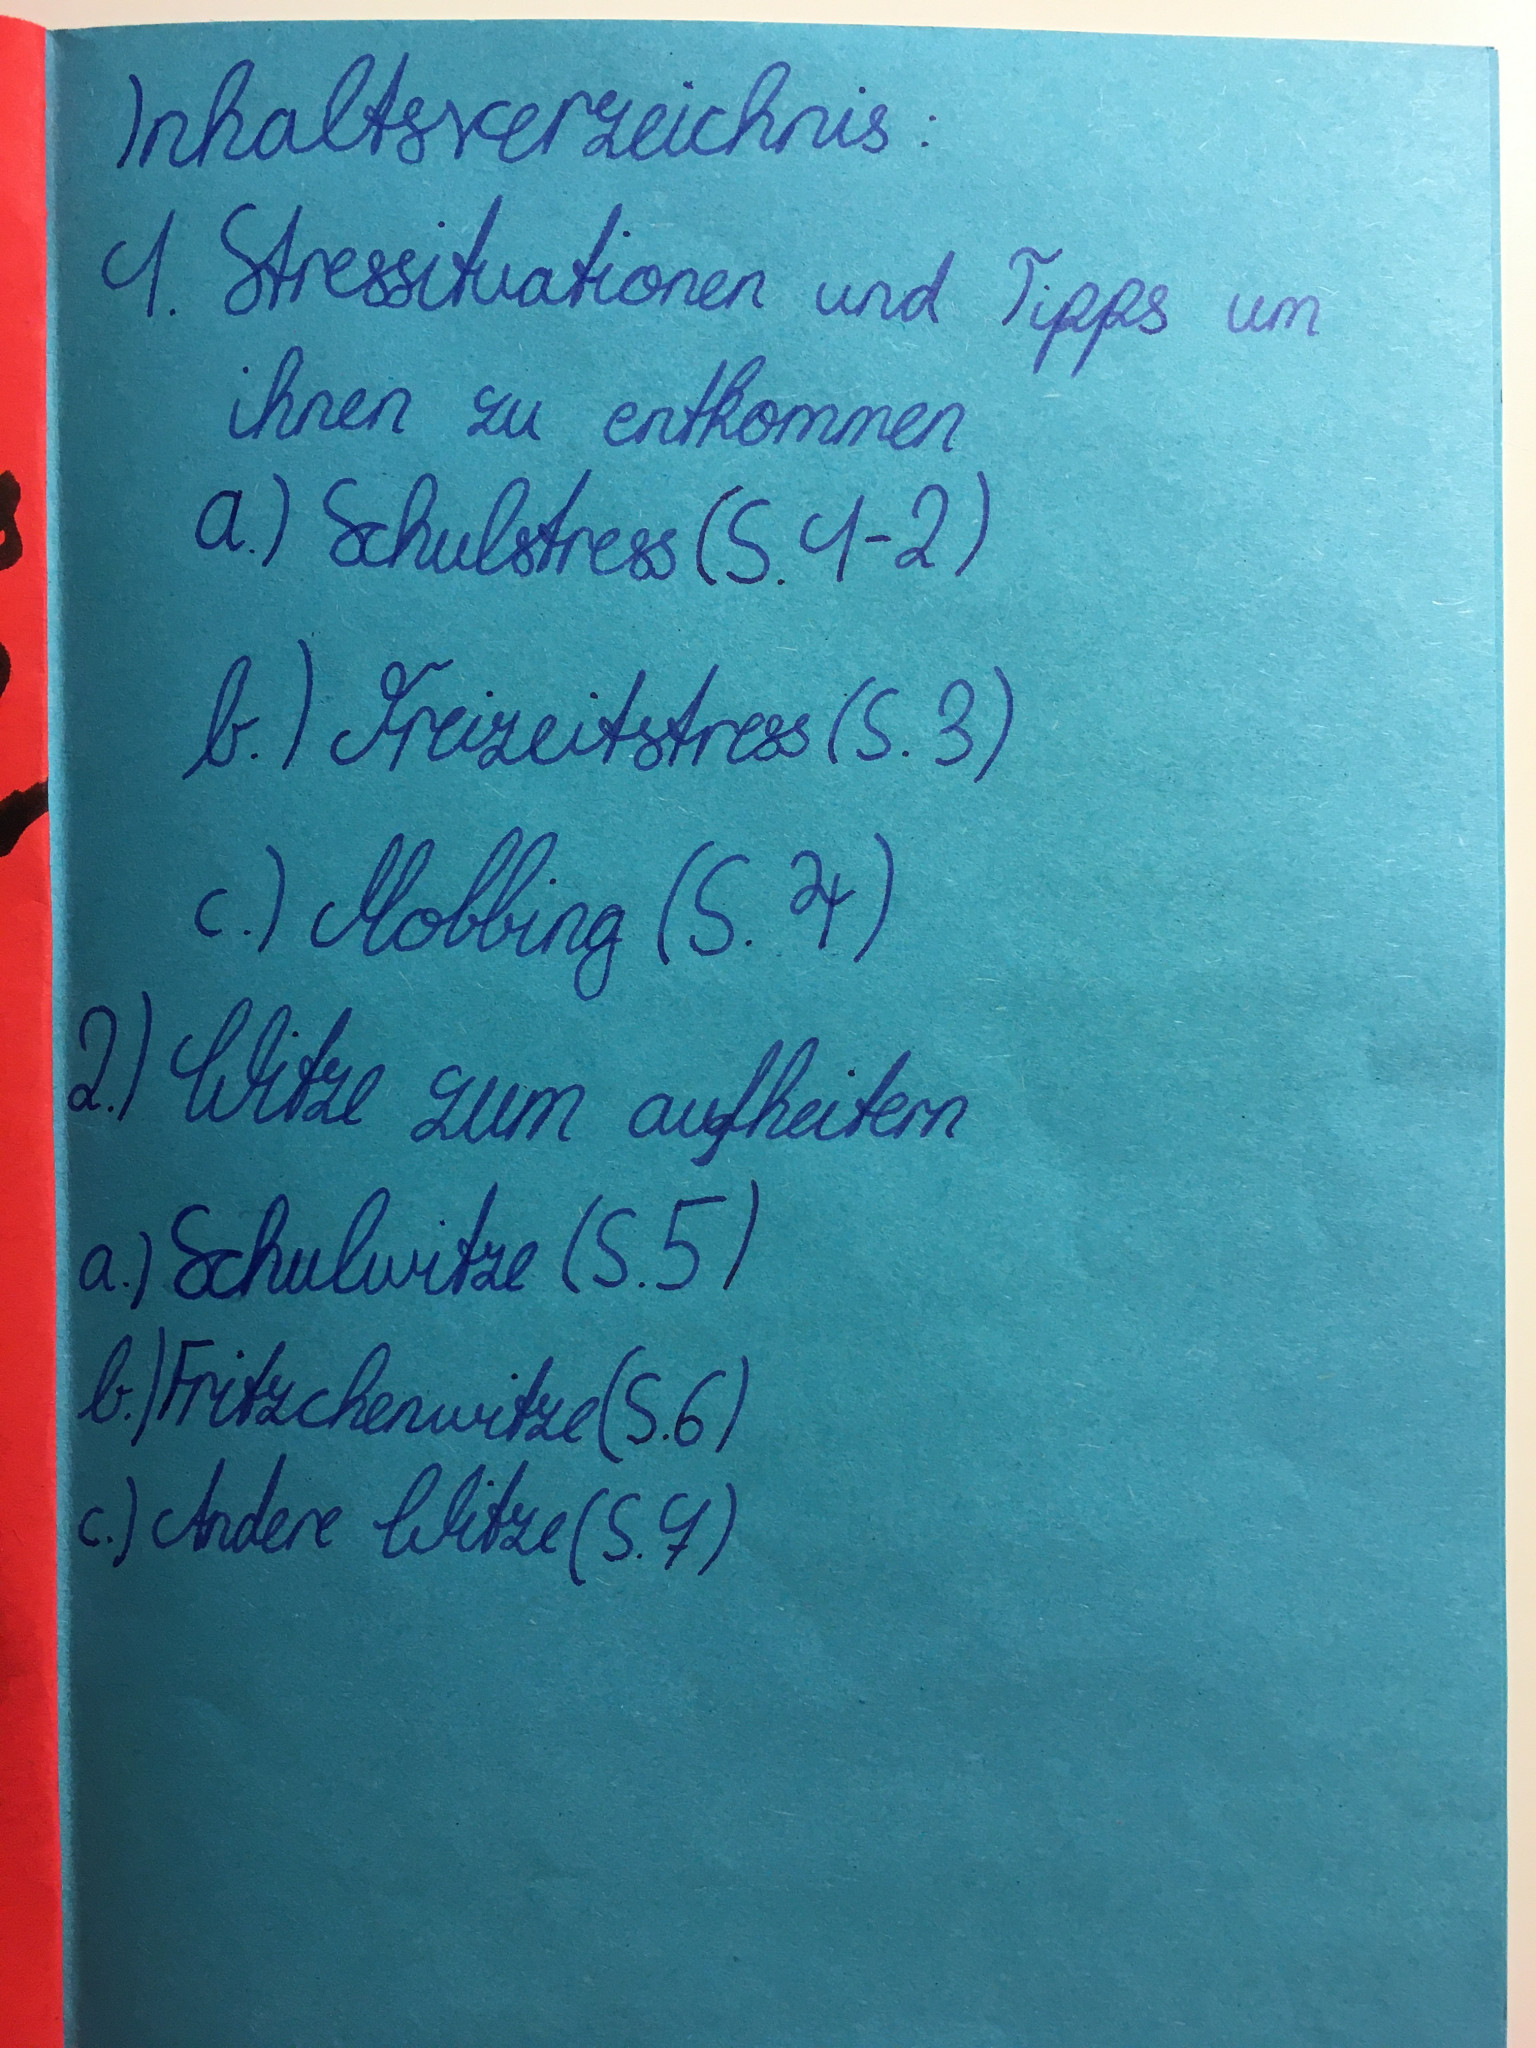 Inhaltsverzeichnis:
1. Stresssituationen und Tipps um
ihnen zu entkommen
a.) Schulstress (S. 1-2)
b.) Freizeitstress (S. 3)
c.) Mobbing (S. 4)
2.) Witze zum aufheitern
a.) Schulwitze (S.5)
b.) Fritzchenwitze (S.6)
c.) Andere Witze (S.7)